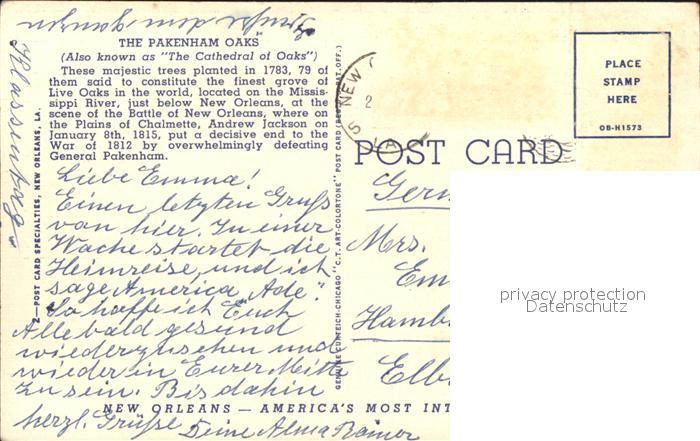 Grüße dem ganzen
Klassentag
THE PAKENHAM OAKS
(Also known as "The Cathedral of Oaks")
These majestic trees planted in 1783, 79 of
them said to constitute the finest grove of
Live Oaks in the world, located on the Missis-
sippi River, just below New Orleans, at the
scene of the Battle of New Orleans, where on
the Plains of Chalmette, Andrew Jackson on
January 8th, 1815, put a decisive end to the
War of 1812 by overwhelmingly defeating
General Pakenham.
2—POST CARD SPECIALTIES, NEW ORLEANS, LA.
Liebe Emma!
Einen letzten Gruß
von hier. In einer
Woche startet die
Heimreise, und ich
sage America Ade."
So hoffe ich Euch
Alle bald gesund
wiederzusehen und
wieder in Eurer Mitte
zu sein. Bis dahin
herzl. Grüße Deine Alma
GENUINE CURTEICH-CHICAGO "C.T. ART-COLORTONE" POST CARD (REG. U.S. PAT. OFF.)
NEW
LA
2
PLACE
STAMP
HERE
OB-H1573
POST CARD
Germ
Mrs.
Em
Hamb
Elb
privacy protection
Datenschutz
NEW ORLEANS — AMERICA'S MOST INT